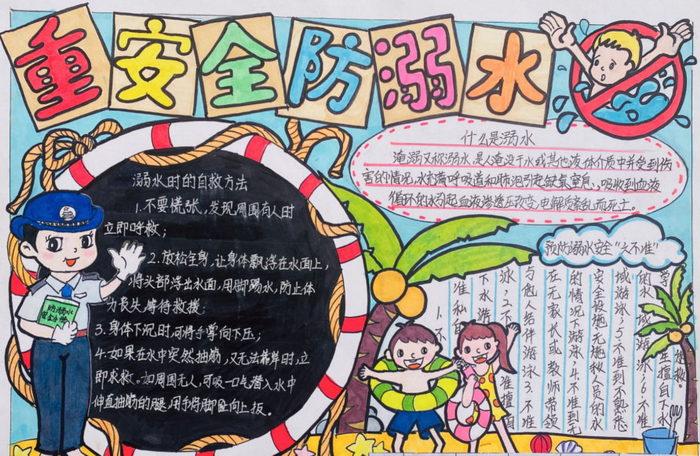 重安全防溺水
溺水时的自救方法
1.不要慌张,发现周围有人时
立即呼救;
2.放松全身,让身体飘浮在水面上,
将头部浮出水面,用脚踢水,防止体
力丧失,等待救援;
3.身体下沉时,可将手掌向下压;
4.如果在水中突然抽筋,又无法靠岸时,立
即求救。如周围无人,可吸一口气潜入水中
伸直抽筋的腿,用手将脚趾向上扳。
防溺水
什么是溺水
淹溺又称溺水,是人淹没于水或其他液体介质中并受到伤
害的情况,水充满呼吸道和肺泡引起缺氧窒息,吸收到血液
循环的水引起血液渗透压改变,电解质紊乱而死亡。
预防溺水安全"六不准"
1.不
准私自
下水游
泳2.不准擅自
与他人结伴游泳3.不准
在无家长或教师带领
的情况下游泳4.不准到无
安全设施无救援人员的水
域游泳5.不准到不熟悉
的水域游泳6.不准
学生擅自下水